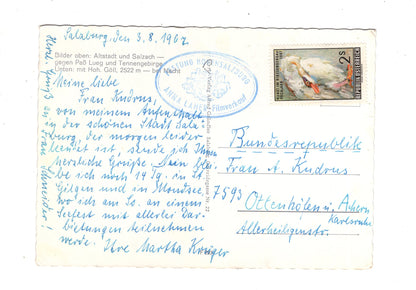 Salzburg, den 3.8.1967
Bilder oben: Altstadt und Salzach —
gegen Paß Lueg und Tennengebirge
Unten: mit Hoh. Göll, 2522 m — bei Nacht
FESTUNG HOHENSALZBURG
ANNA Filmverkauf
2 S
REPUBLIK ÖSTERREICH
Meine liebe
Frau Kudrus,
von meinem Aufenthalt
in der schönen Stadt Salz-
burg, der morgen
, sende ich Ihnen
herzliche Grüße.
be ich noch 19 Tg. in St.
Gilgen und in Mondsee,
wo ich am So. an einem
Seefest mit allerlei Dar-
bietungen teilnehmen
werde. Ihre Martha Krüger
Herzl. Gruß an Frau Schneider!
Bundesrepublik
Frau A. Kudrus
7593 Ottenhöfen ü. Achern
Karlsruhe
Allerheiligenstr.